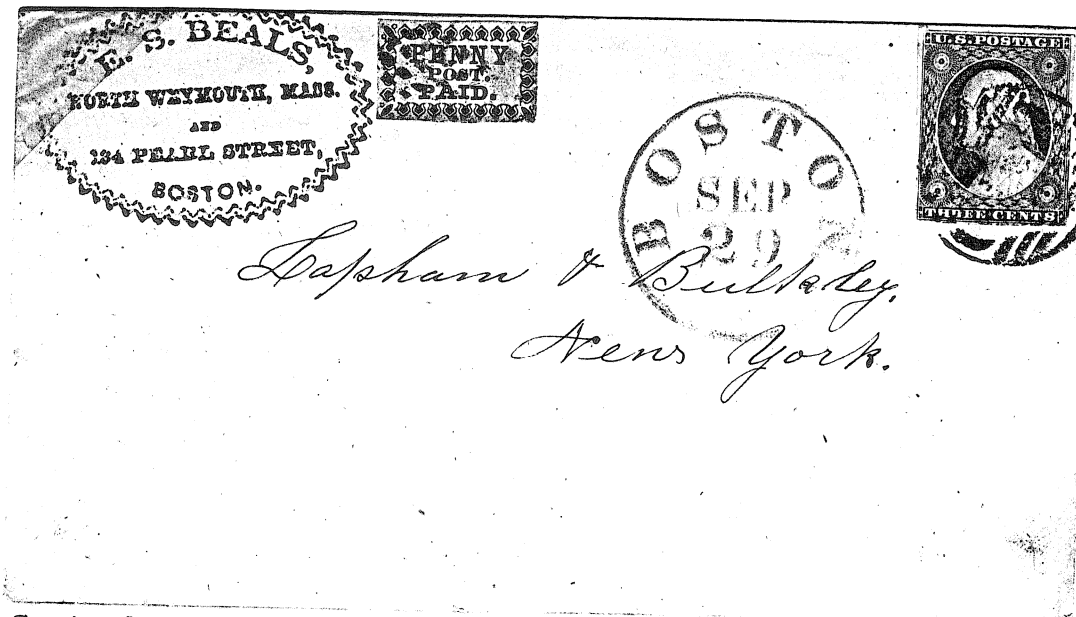 E. S. BEALS,
NORTH WEYMOUTH, MASS.
AND
134 PEARL STREET,
BOSTON.
PENNY
POST.
PAID.
BOSTON
SEP
29
U.S. POSTAGE
THREE CENTS
Lapham & Bulkley,
New York.